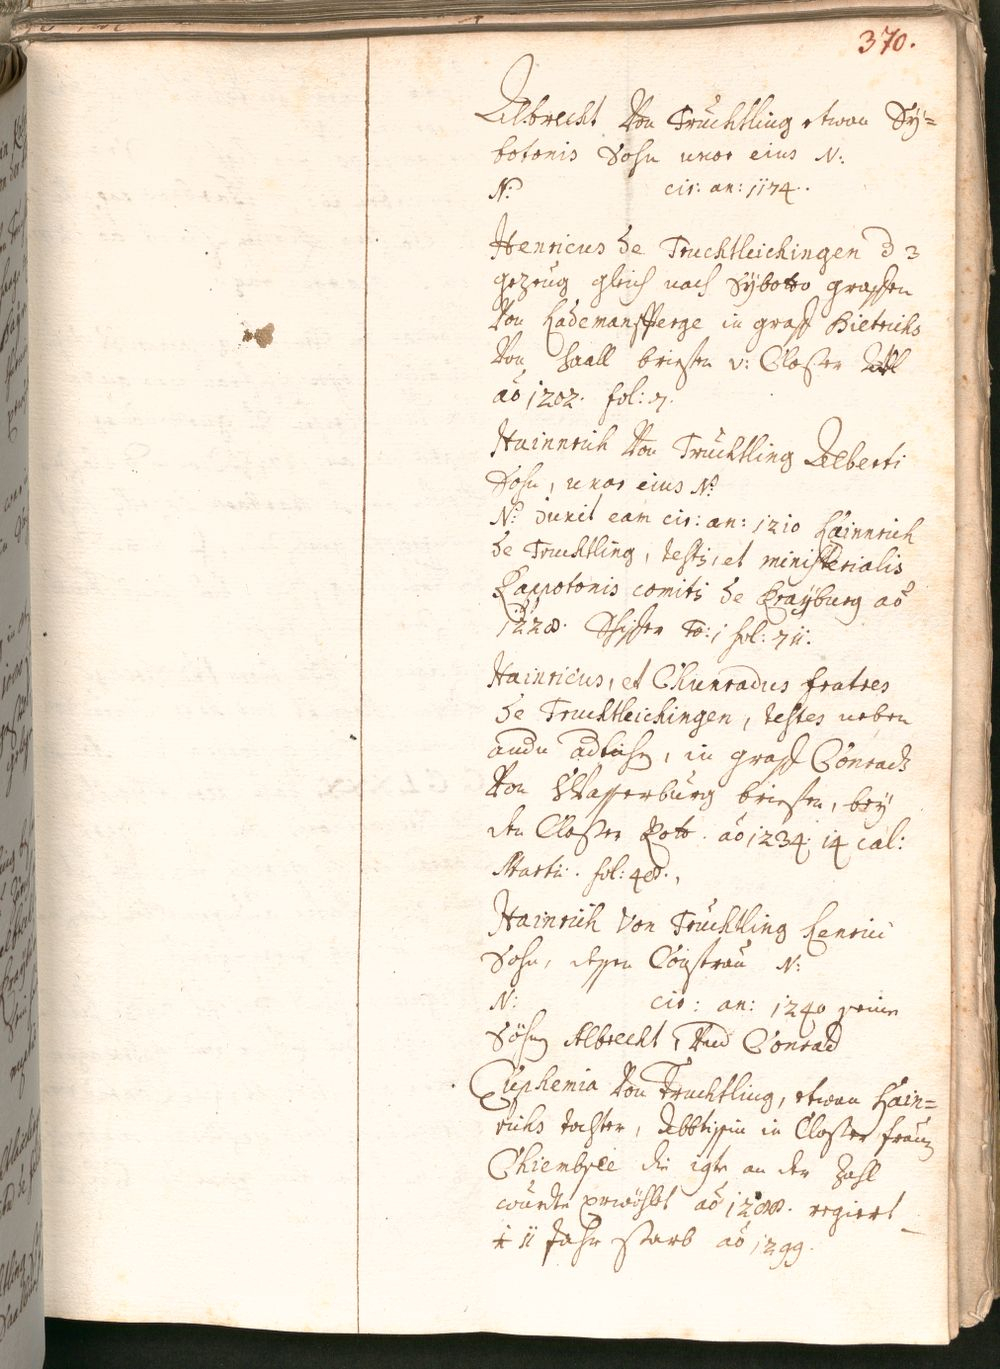 370.
Albrecht Von Trüchtling etwan Sÿ=
botonis Sohn uxor eius N:
N: cir: an: 1174.
Henricus de Truchtleichingen d 3
gezeug gleich nach Sÿboto grafen
Von Hademansperge in graff Dietrichs
Von brieffen v: Closter
aõ 1202. fol: 7.
Hainnrich Von Trüchtling Alberti
Sohn, uxor eius N:
N: duxit eam cir: an: 1210 Hainnrich
de Truchtling, testis, et ministerialis
Rapotonis comitis de Kraÿburg aõ
1228. To: 1 fol: 711.
Hainricus, et Chunradus fratres
de Truchtleichingen, testes neben
andn adliche, in graff Conrads
Von Wasserbürg brieffen, beÿ
den Closter Rott. aõ 1234. 14 cal:
Martii. fol: 48.,
Hainrich Von Trüchtling Henrici
Sohn, dessen N:
N: cir: an: 1240 seine
Söhn Albrecht, Und Conrad
Euphemia Von Truchtling, etwan Hain=
richs tochter, Abbtissin in Closter frauen
Chiembsee die igte an der Zahl
wurdte erwöhlt aõ 1288. regiert
11 Jahr starb aõ 1299.